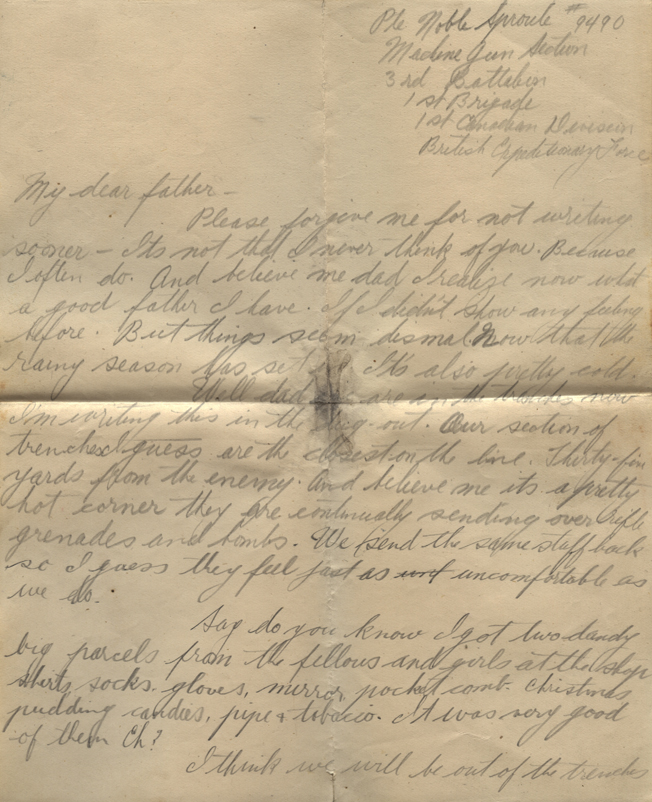 Pte Noble Sproule #9490
Machine Gun Section
3rd Battalion
1st Brigade
1st Canadian Division
British Expeditionary Force
My dear father -
Please forgive me for not writing
sooner - Its not that I never think of you. Because
I often do. And believe me dad I realize now what
a good father I have. If I didn't show any feeling
before. But things seem dismal Now that the
rainy season has set in It's also pretty cold.
Well dad we are in the trenches now
I'm writing this in the dug-out. Our section of
trenches I guess are the closest on the line. Thirty-five
yards from the enemy. And believe me its a pretty
hot corner they are continually sending over rifle
grenades and bombs. We send the same stuff back
so I guess they feel just as uncomfortable as
we do.
Say do you know I got two dandy
big parcels from the fellows and girls at the shop
shirts, socks, gloves, mirror, pocket comb. Christmas
pudding candies, pipe & tobacco. It was very good
of them Eh?
I think we will be out of the trenches